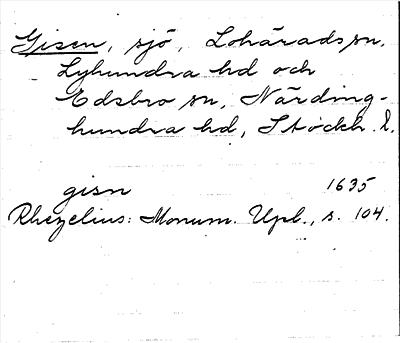 Gisen, sjö, Lohärads sn,
Lyhundra hd och
Edsbro sn, Närding-
hundra hd, Stockh. l.
gisn 1635
Rhezelius: Monum. Upl., s. 104.